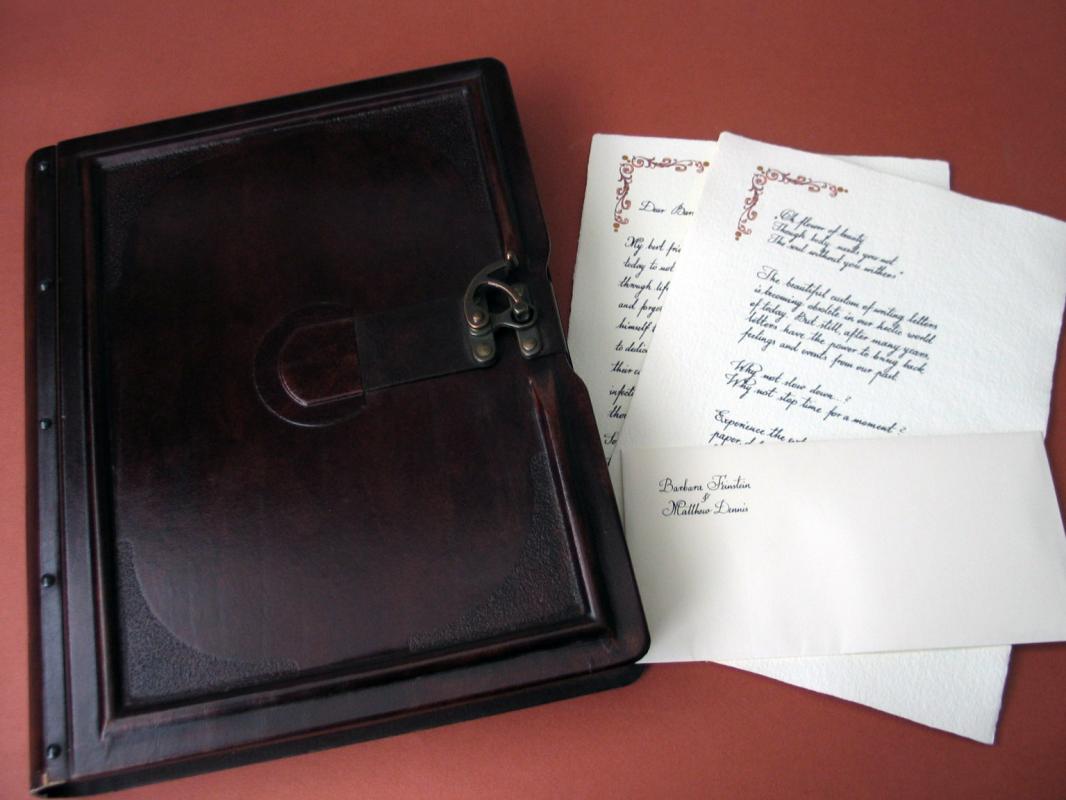 Dear Bar
My best frie
today to not
through life
and forge
himself t
to dedic
their c
infecti
thou
So
„Oh flower of beauty
Though body needs you not
The soul without you withers"
The beautiful custom of writing letters
is becoming obsolete in our hectic world
of today. But still after many years,
letters have the power to bring back
feelings and events from our past.
Why not slow down...?
Why not stop time for a moment?
Experience the
paper
Barbara Feinstein
&
Matthew Dennis